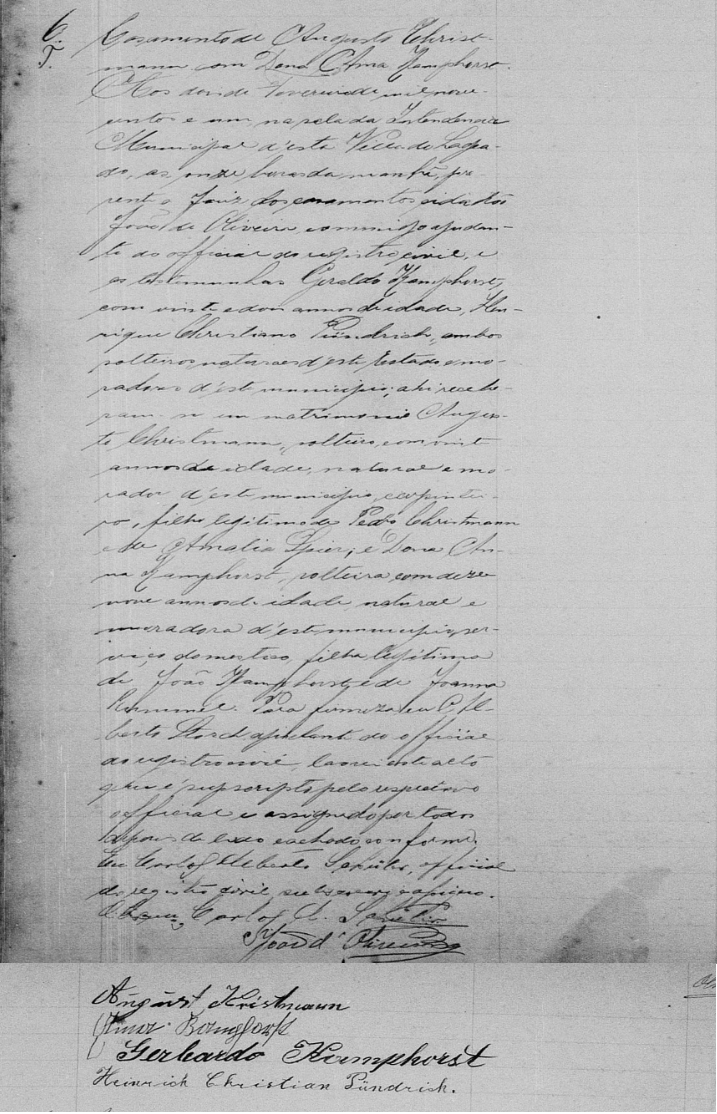 6. Casamento de Augusto Christ-
T. mann com Dona Anna Kamphorst.
Aos dois de Fevereiro de mil nove-
centos e um na sala da Intendencia
Municipal d'esta Villa do Lagea-
do, as onze horas da manhã, pe-
rente o Juiz dos casamentos cidadão
João de Oliveira, commigo ajudan-
te do official do registro civil, e
as testimunhas Geraldo Kamphorst,
com vinte e dois annos de idade, Hen-
rique Christiano Pündrich, ambos
solteiros, naturaes d'este Estado e mo-
radores d'este municipio, ahi recebe-
ram-se em matrimonio Augus-
to Christmann, solteiro, com vinte
annos de idade, natural e mo-
rador d'este municipio, carpintei-
ro, filho legitimo de Pedro Christmann
e de Amalia Spier; e Dona An-
na Kamphorst, solteira, com deze
nove annos de idade, natural e
moradora d'este municipio, ser-
viço domestico, filha legitima
de João Kamphorst, e de Joanna
Para firmeza eu C. Al-
berto Storck, ajudante do official
do registro civil, lavrei este acto
que é supscripto pelo respectivo
official e assignado por todos
depois de lido e achado conforme.
Eu Carlos Alberto Schüler, official
do registro civil subscrevo e assino.
Carlos A. Schüler
João d' Oliveira
August Kristmann
Anna Kamphorst
Gerhardo Kamphorst
Heinrich Christian Pündrich.